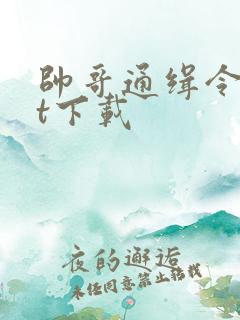 帥哥通缉令
t下載
夜的邂逅
未经同意禁止转载